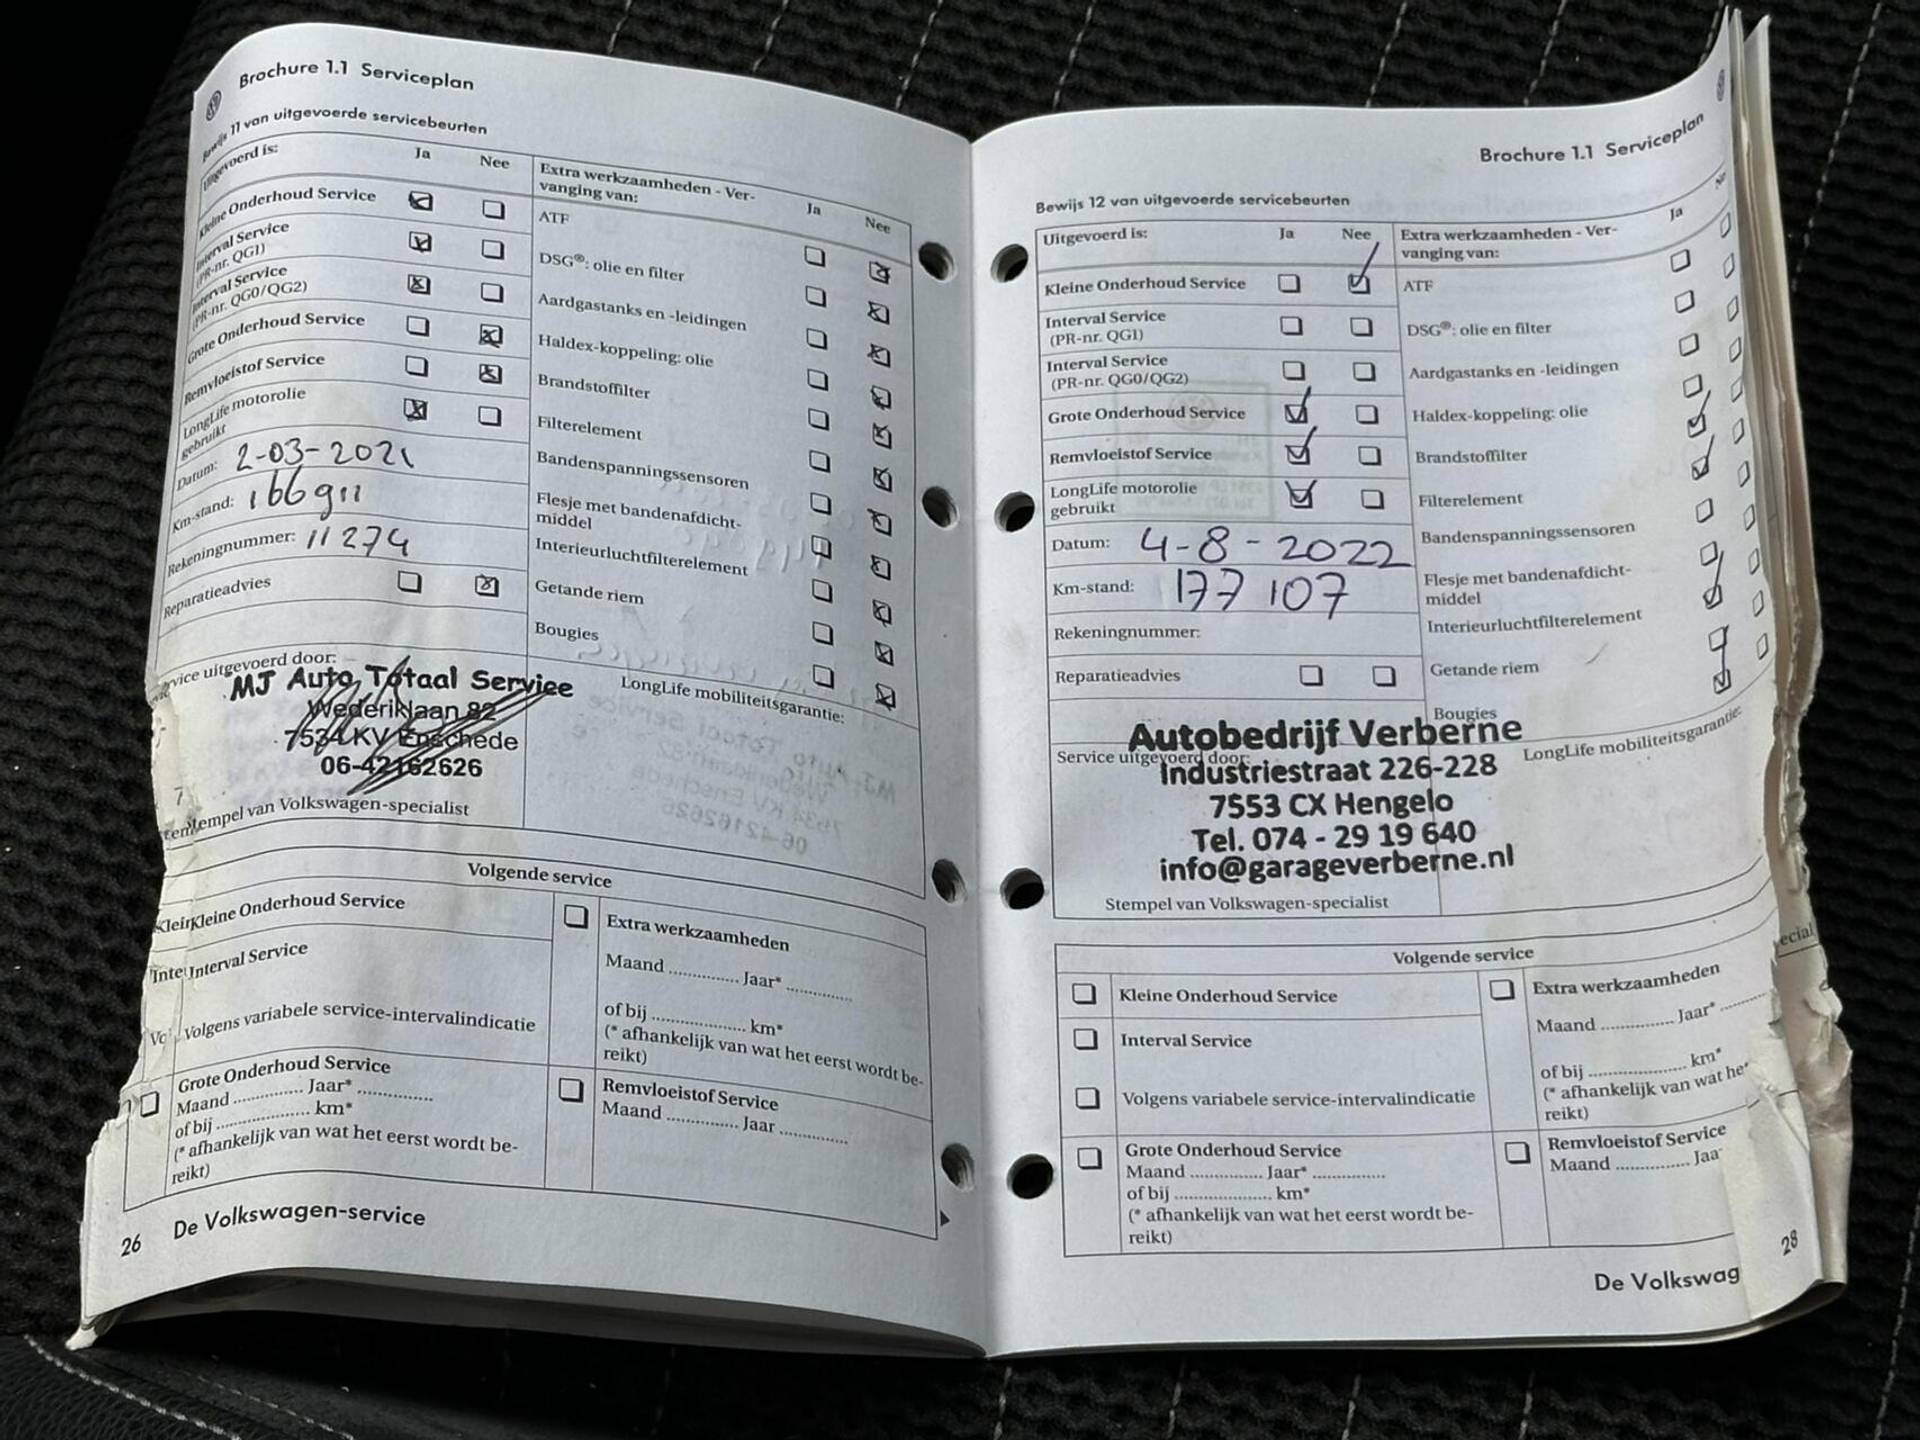 Brochure 1.1 Serviceplan
Bewijs 11 van uitgevoerde servicebeurten
Uitgevoerd is:
Ja
Nee
Kleine Onderhoud Service
Interval Service
(PR-nr. QG1)
Interval Service
(PR-nr. QG0/QG2)
Grote Onderhoud Service
Remvloeistof Service
LongLife motorolie
gebruikt
Datum: 2-03-2021
Km-stand: 166911
Rekeningnummer: 11274
Reparatieadvies
Extra werkzaamheden - Ver-
vanging van:
Ja
Nee
ATF
DSG®: olie en filter
Aardgastanks en -leidingen
Haldex-koppeling: olie
Brandstoffilter
Filterelement
Bandenspanningssensoren
Flesje met bandenafdicht-
middel
Interieurluchtfilterelement
Getande riem
Bougies
LongLife mobiliteitsgarantie:
Service uitgevoerd door:
MJ Auto Totaal Service
Wederiklaan 82
7534 KV Enschede
06-42162626
Stempel van Volkswagen-specialist
Volgende service
Kleine Onderhoud Service
Interval Service
Volgens variabele service-intervalindicatie
Grote Onderhoud Service
Maand .............. Jaar* ..............
of bij .................. km*
(* afhankelijk van wat het eerst wordt be-
reikt)
Extra werkzaamheden
Maand .............. Jaar* .............
of bij .................. km*
(* afhankelijk van wat het eerst wordt be-
reikt)
Remvloeistof Service
Maand .............. Jaar .............
26 De Volkswagen-service
Brochure 1.1 Serviceplan
Bewijs 12 van uitgevoerde servicebeurten
Uitgevoerd is:
Ja
Nee
Kleine Onderhoud Service
Interval Service
(PR-nr. QG1)
Interval Service
(PR-nr. QG0/QG2)
Grote Onderhoud Service
Remvloeistof Service
LongLife motorolie
gebruikt
Datum: 4-8-2022
Km-stand: 177 107
Rekeningnummer:
Reparatieadvies
Extra werkzaamheden - Ver-
vanging van:
Ja
ATF
DSG®: olie en filter
Aardgastanks en -leidingen
Haldex-koppeling: olie
Brandstoffilter
Filterelement
Bandenspanningssensoren
Flesje met bandenafdicht-
middel
Interieurluchtfilterelement
Getande riem
Bougies
LongLife mobiliteitsgarantie:
Service uitgevoerd door:
Autobedrijf Verberne
Industriestraat 226-228
7553 CX Hengelo
Tel. 074 - 29 19 640
info@garageverberne.nl
Stempel van Volkswagen-specialist
Volgende service
Kleine Onderhoud Service
Interval Service
Volgens variabele service-intervalindicatie
Grote Onderhoud Service
Maand .............. Jaar* ..............
of bij .................. km*
(* afhankelijk van wat het eerst wordt be-
reikt)
Extra werkzaamheden
Maand .............. Jaar* .............
of bij .................. km*
(* afhankelijk van wat he
reikt)
Remvloeistof Service
Maand .............. Jaa
De Volkswag
28